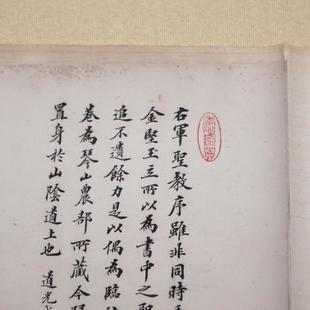 右軍聖教序雖非同時
金堅玉立所以為書中之聖
追不遺餘力是以偶為臨
卷為琴山農部所藏今歸
置身於山陰道上也 道光